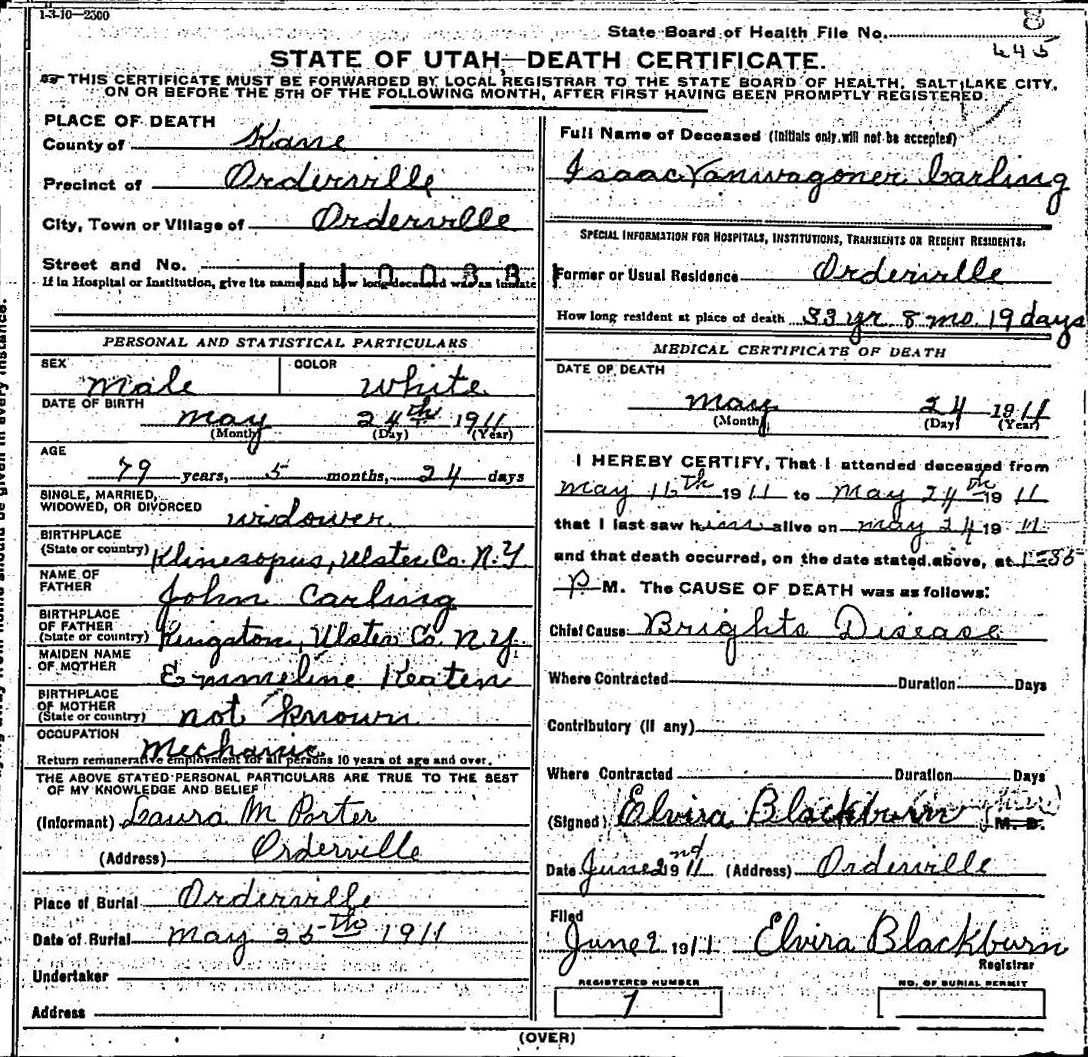 1-3-10—2500
8
State Board of Health File No.
445
STATE OF UTAH—DEATH CERTIFICATE.
THIS CERTIFICATE MUST BE FORWARDED BY LOCAL REGISTRAR TO THE STATE BOARD OF HEALTH, SALT LAKE CITY,
ON OR BEFORE THE 5TH OF THE FOLLOWING MONTH, AFTER FIRST HAVING BEEN PROMPTLY REGISTERED.
PLACE OF DEATH
County of Kane
Precinct of Orderville
City, Town or Village of Orderville
Street and No.
110033
If in Hospital or Institution, give its name and how long deceased was an inmate
Full Name of Deceased (Initials only will not be accepted)
Isaac Vanwagoner Carling
SPECIAL INFORMATION FOR HOSPITALS, INSTITUTIONS, TRANSIENTS OR RECENT RESIDENTS:
Former or Usual Residence Orderville
How long resident at place of death 33 yr 8 mo. 19 days
PERSONAL AND STATISTICAL PARTICULARS
SEX COLOR
male white
DATE OF BIRTH
may 24th 1911
(Month) (Day) (Year)
AGE
79 years, 5 months, 24 days
SINGLE, MARRIED,
WIDOWED, OR DIVORCED widower
BIRTHPLACE
(State or country) Klinesopus, Ulster Co. N.Y
NAME OF
FATHER John Carling
BIRTHPLACE
OF FATHER
(State or country) Kingston, Ulster Co. N.Y.
MAIDEN NAME
OF MOTHER Emmeline Keaten
BIRTHPLACE
OF MOTHER
(State or country) not known
OCCUPATION
Mechanic
Return remunerative employment for all persons 10 years of age and over.
THE ABOVE STATED PERSONAL PARTICULARS ARE TRUE TO THE BEST
OF MY KNOWLEDGE AND BELIEF
(Informant) Laura M Porter
(Address) Orderville
Place of Burial Orderville
Date of Burial may 25th 1911
Undertaker
Address
MEDICAL CERTIFICATE OF DEATH
DATE OF DEATH
may 24 1911
(Month) (Day) (Year)
I HEREBY CERTIFY, That I attended deceased from
may 16th 1911 to may 24th 1911
that I last saw him alive on may 24 1911
and that death occurred, on the date stated above, at
P M. The CAUSE OF DEATH was as follows:
Chief Cause: Brights Disease
Where Contracted Duration Days
Contributory (If any)
Where Contracted Duration Days
(Signed) Elvira Blackburn M. D.
Date June 2nd 1911 (Address) Orderville
Filed
June 2 1911 Elvira Blackburn
Registrar
REGISTERED NUMBER NO. OF BURIAL PERMIT
7
(OVER)